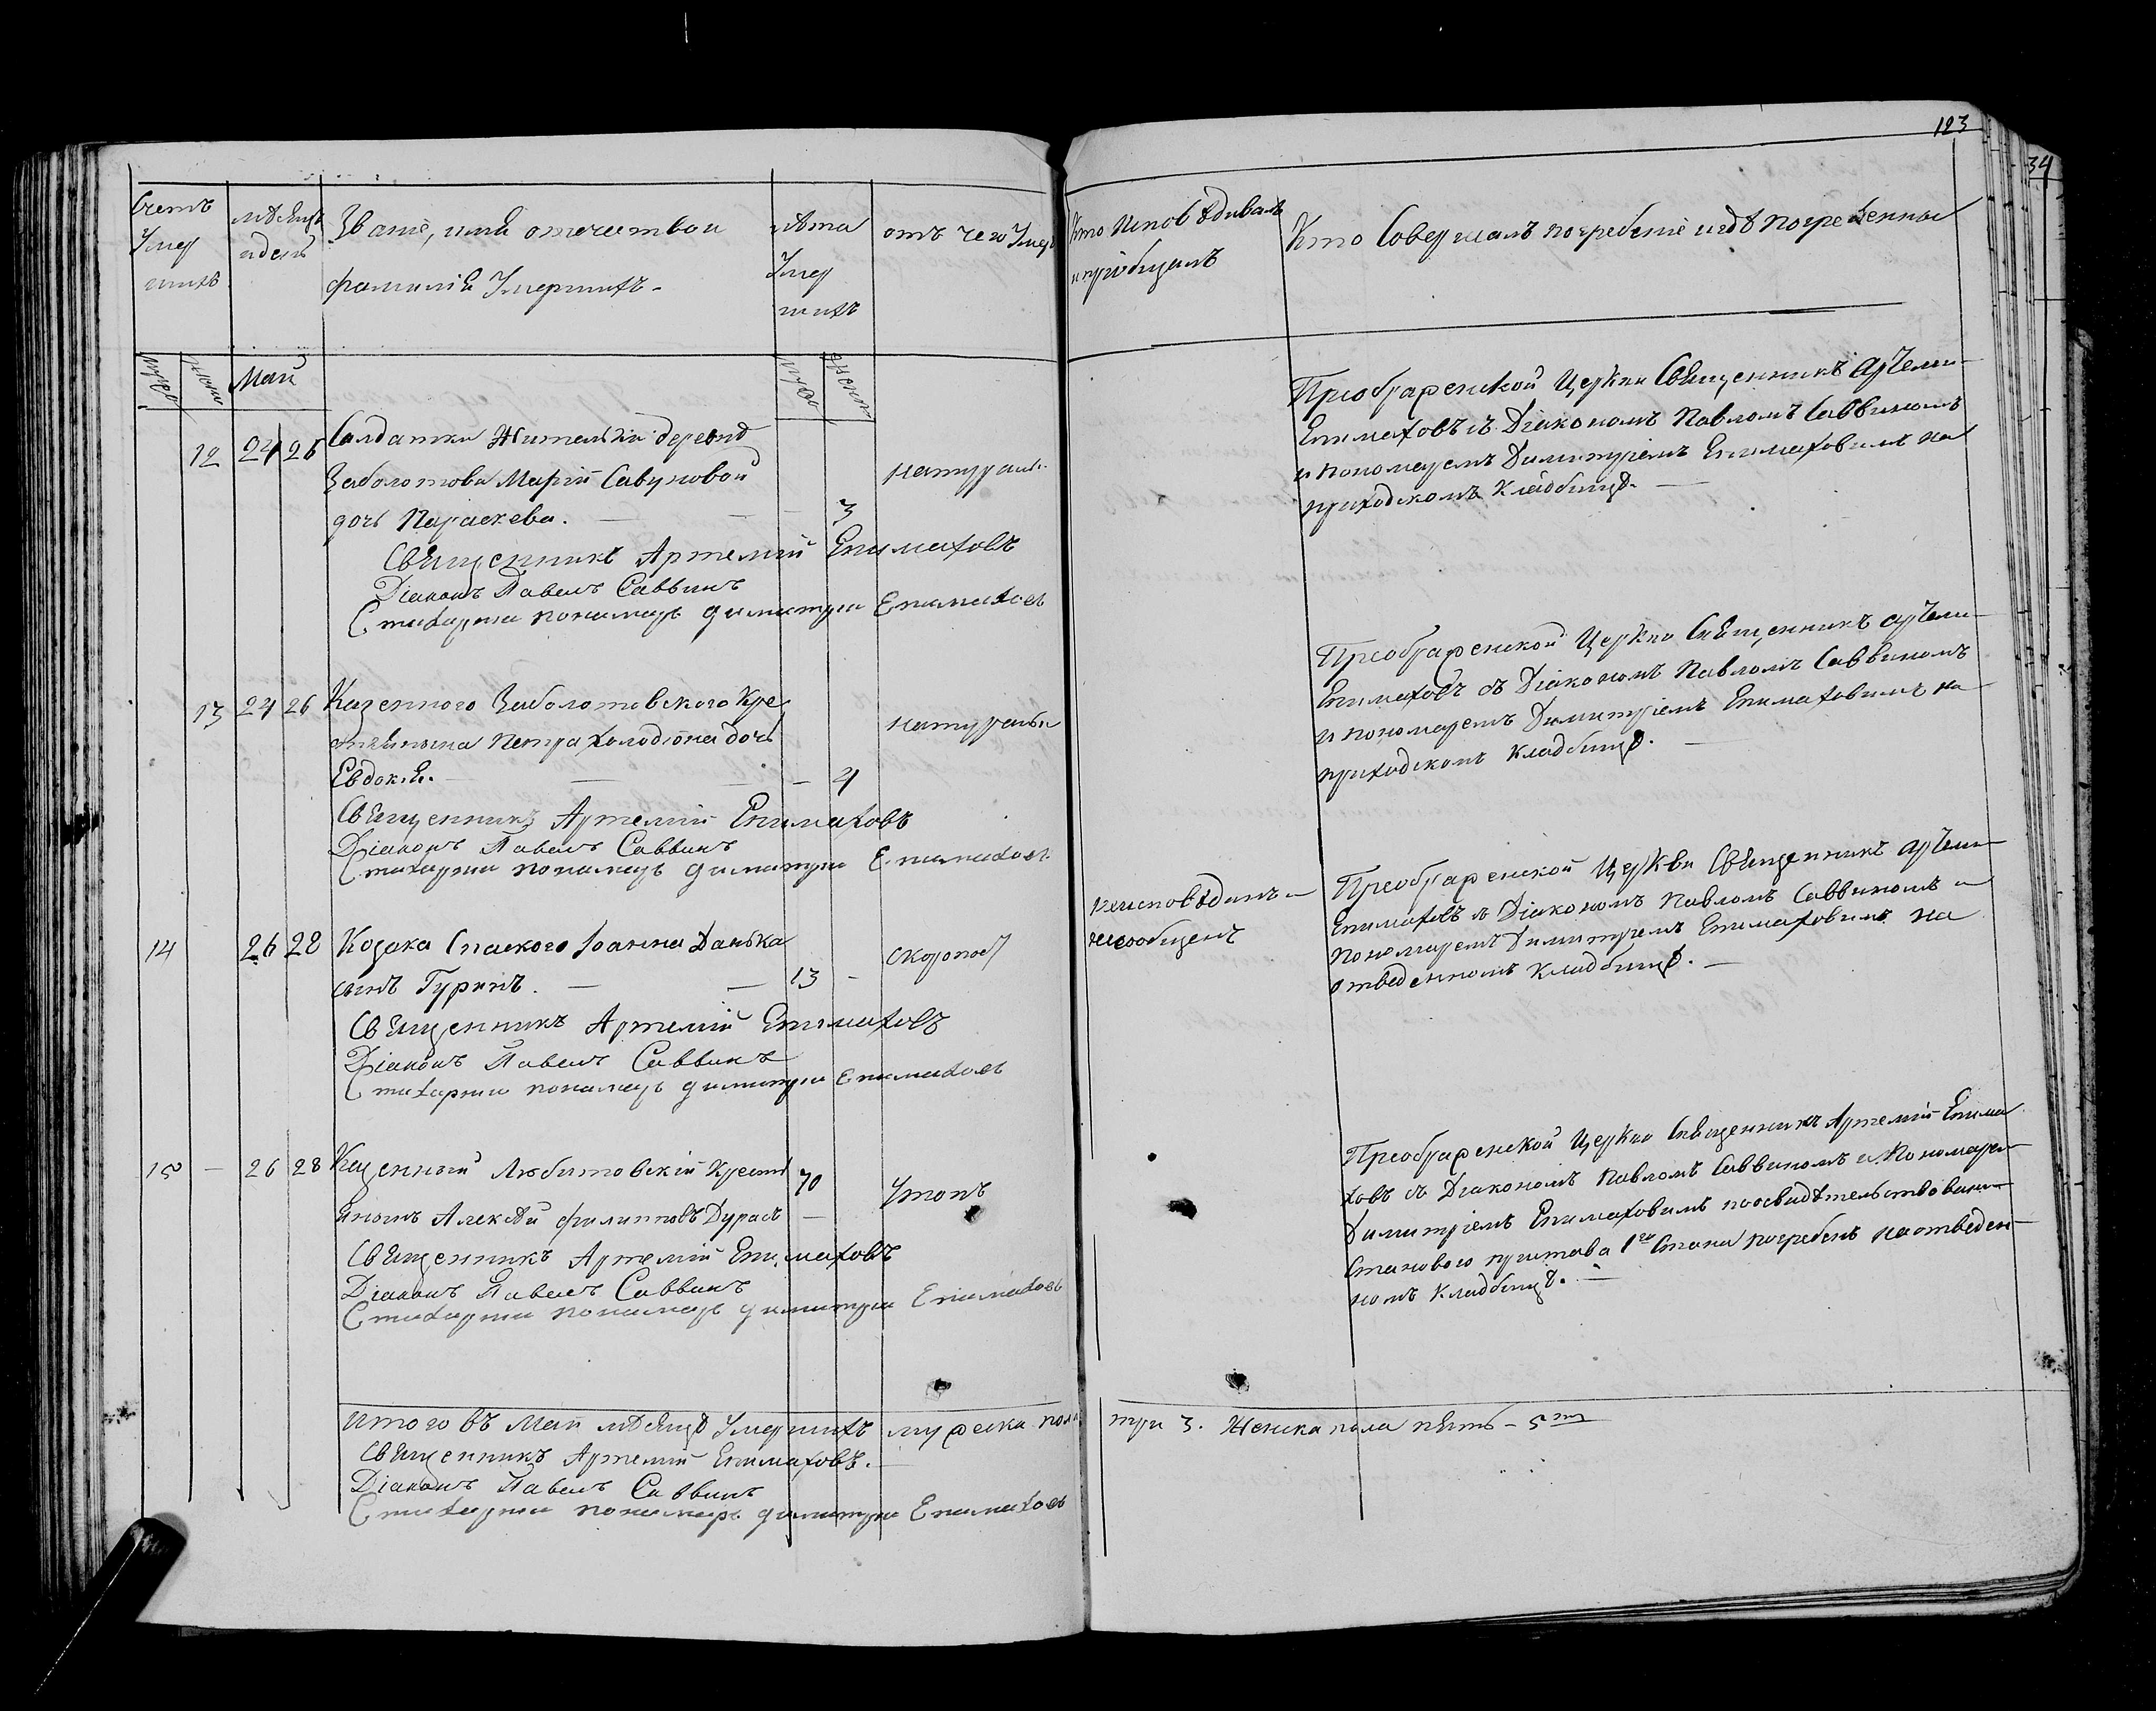 123
34
Счетъ
Умер
шихъ
мѣсяцъ
и день
Званіе, имя отечество и
фамилія Умершихъ.
лѣта
Умер
шихъ
отъ чего Умеръ
Кто Исповѣдивалъ
и пріобщалъ
Кто Совершалъ погребеніе и гдѣ погребенны
муж
жен
Маи
муж
женс
12 24 26 Салдатки Жительки деревнѣ
Заболотова Маріи Савуновой
дочь Параскева. — — — 3
натураль.
Священникъ Артемій Епимаховъ
Діаконъ Павелъ Саввинъ
Стихарни пономарь Димитри Епимаховъ
Преображенской Церкви Священникъ Артеми
Епимаховъ съ Діакономъ Павломъ Саввиномъ
и пономаремъ Димитріемъ Епимаховимъ на
приходскомъ кладбищѣ. —
13 24 26 Казенного Заболотовского Кре
стянина Петра Холодіона дочь
Евдокія. — — — 4
натуральн
Священникъ Артемій Епимаховъ
Діаконъ Павелъ Саввинъ
Стихарни пономарь Димитри Епимаховъ
Преображенской Церкви Священникъ Артеми
Епимаховъ съ Діакономъ Павломъ Саввиномъ
и пономаремъ Димитріемъ Епимаховимъ на
приходскомъ кладбищѣ. —
14 26 28 Козака Спаского Іоанна Данька
сынъ Гуринъ. — — 13 -
скоропос
неисповѣданъ и
несообщенъ
Священникъ Артемій Епимаховъ
Діаконъ Павелъ Саввинъ
Стихарни пономарь Димитри Епимаховъ
Преображенской Церкви Священникъ Артеми
Епимаховъ съ Діакономъ Павломъ Саввиномъ и
пономаремъ Димитріемъ Епимаховимъ на
отведенномъ кладбищѣ. —
15 — 26 28 Казенный Любитовскій Крест
яноинъ Алексѣй Филиповъ Дурасъ 70 —
Утопъ
Священникъ Артемій Епимаховъ
Діаконъ Павелъ Саввинъ
Стихарни пономарь Димитри Епимаховъ
Преображенской Церкви Священникъ Артемій Епима
ховъ съ Діакономъ Павломъ Саввиномъ и Пономаре
Димитріемъ Епимаховимъ поосвидѣтельствовани
Станового пристава 1го Стана погребенъ на отведен
номъ кладбищѣ. —
Итого въ Маи мѣсяцѣ Умершихъ мужеска пола три 3. Женска пола пять — 5ть
Священникъ Артемій Епимаховъ.
Діаконъ Павелъ Саввинъ
Стихарни пономарь Димитри Епимаховъ